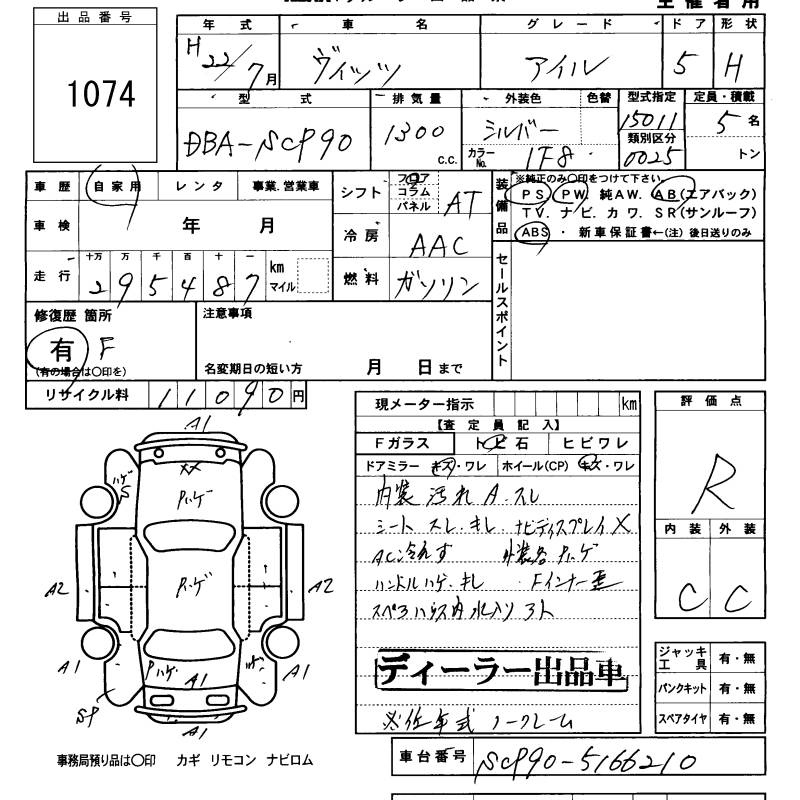 出品番号
1074
主催者用
年式 車名 グレード ドア 形状
H22/7月 ヴィッツ アイル 5 H
型式 排気量 外装色 色替 型式指定 定員・積載
DBA-SCP90 1300 C.C. シルバー 15011 5名
カラーNo. 1F8 類別区分 0025 トン
車歴 自家用 レンタ 事業.営業車
シフト フロア コラム パネル AT
車検 年 月
冷房 AAC
走行 十万 万 千 百 十
295487 km マイル
燃料 ガソリン
装備品 ※純正のみ〇印をつけて下さい。
PS PW. 純AW. AB(エアバック)
TV. ナビ. カワ. SR(サンルーフ)
ABS・ 新車保証書←(注)後日送りのみ
セールスポイント
修復歴 箇所
有 F
(有の場合は〇印を)
注意事項
名変期日の短い方 月 日まで
リサイクル料 11090円
現メーター指示 km
【査定員記入】
Fガラス トビ石 ヒビワレ
ドアミラー キズ・ワレ ホイール(CP) キズ・ワレ
内装 汚れ A.スレ
シート スレ.キレ.ナビディスプレイX
AC冷えず 外装各Pハゲ
ハンドルハゲ.キレ Fインナー歪
スペアハウス内水入り 3ト
ディーラー出品車
※低年式 ノークレーム
車台番号 SCP90-5166210
評価点
R
内装 外装
C C
ジャッキ工具 有・無
パンクキット 有・無
スペアタイヤ 有・無
A1
ハゲ
S
XX
Pハゲ
A2
Pハゲ
A2
A1
Pハゲ
A1
A1
SP
A1
事務局預り品は〇印 カギ リモコン ナビロム